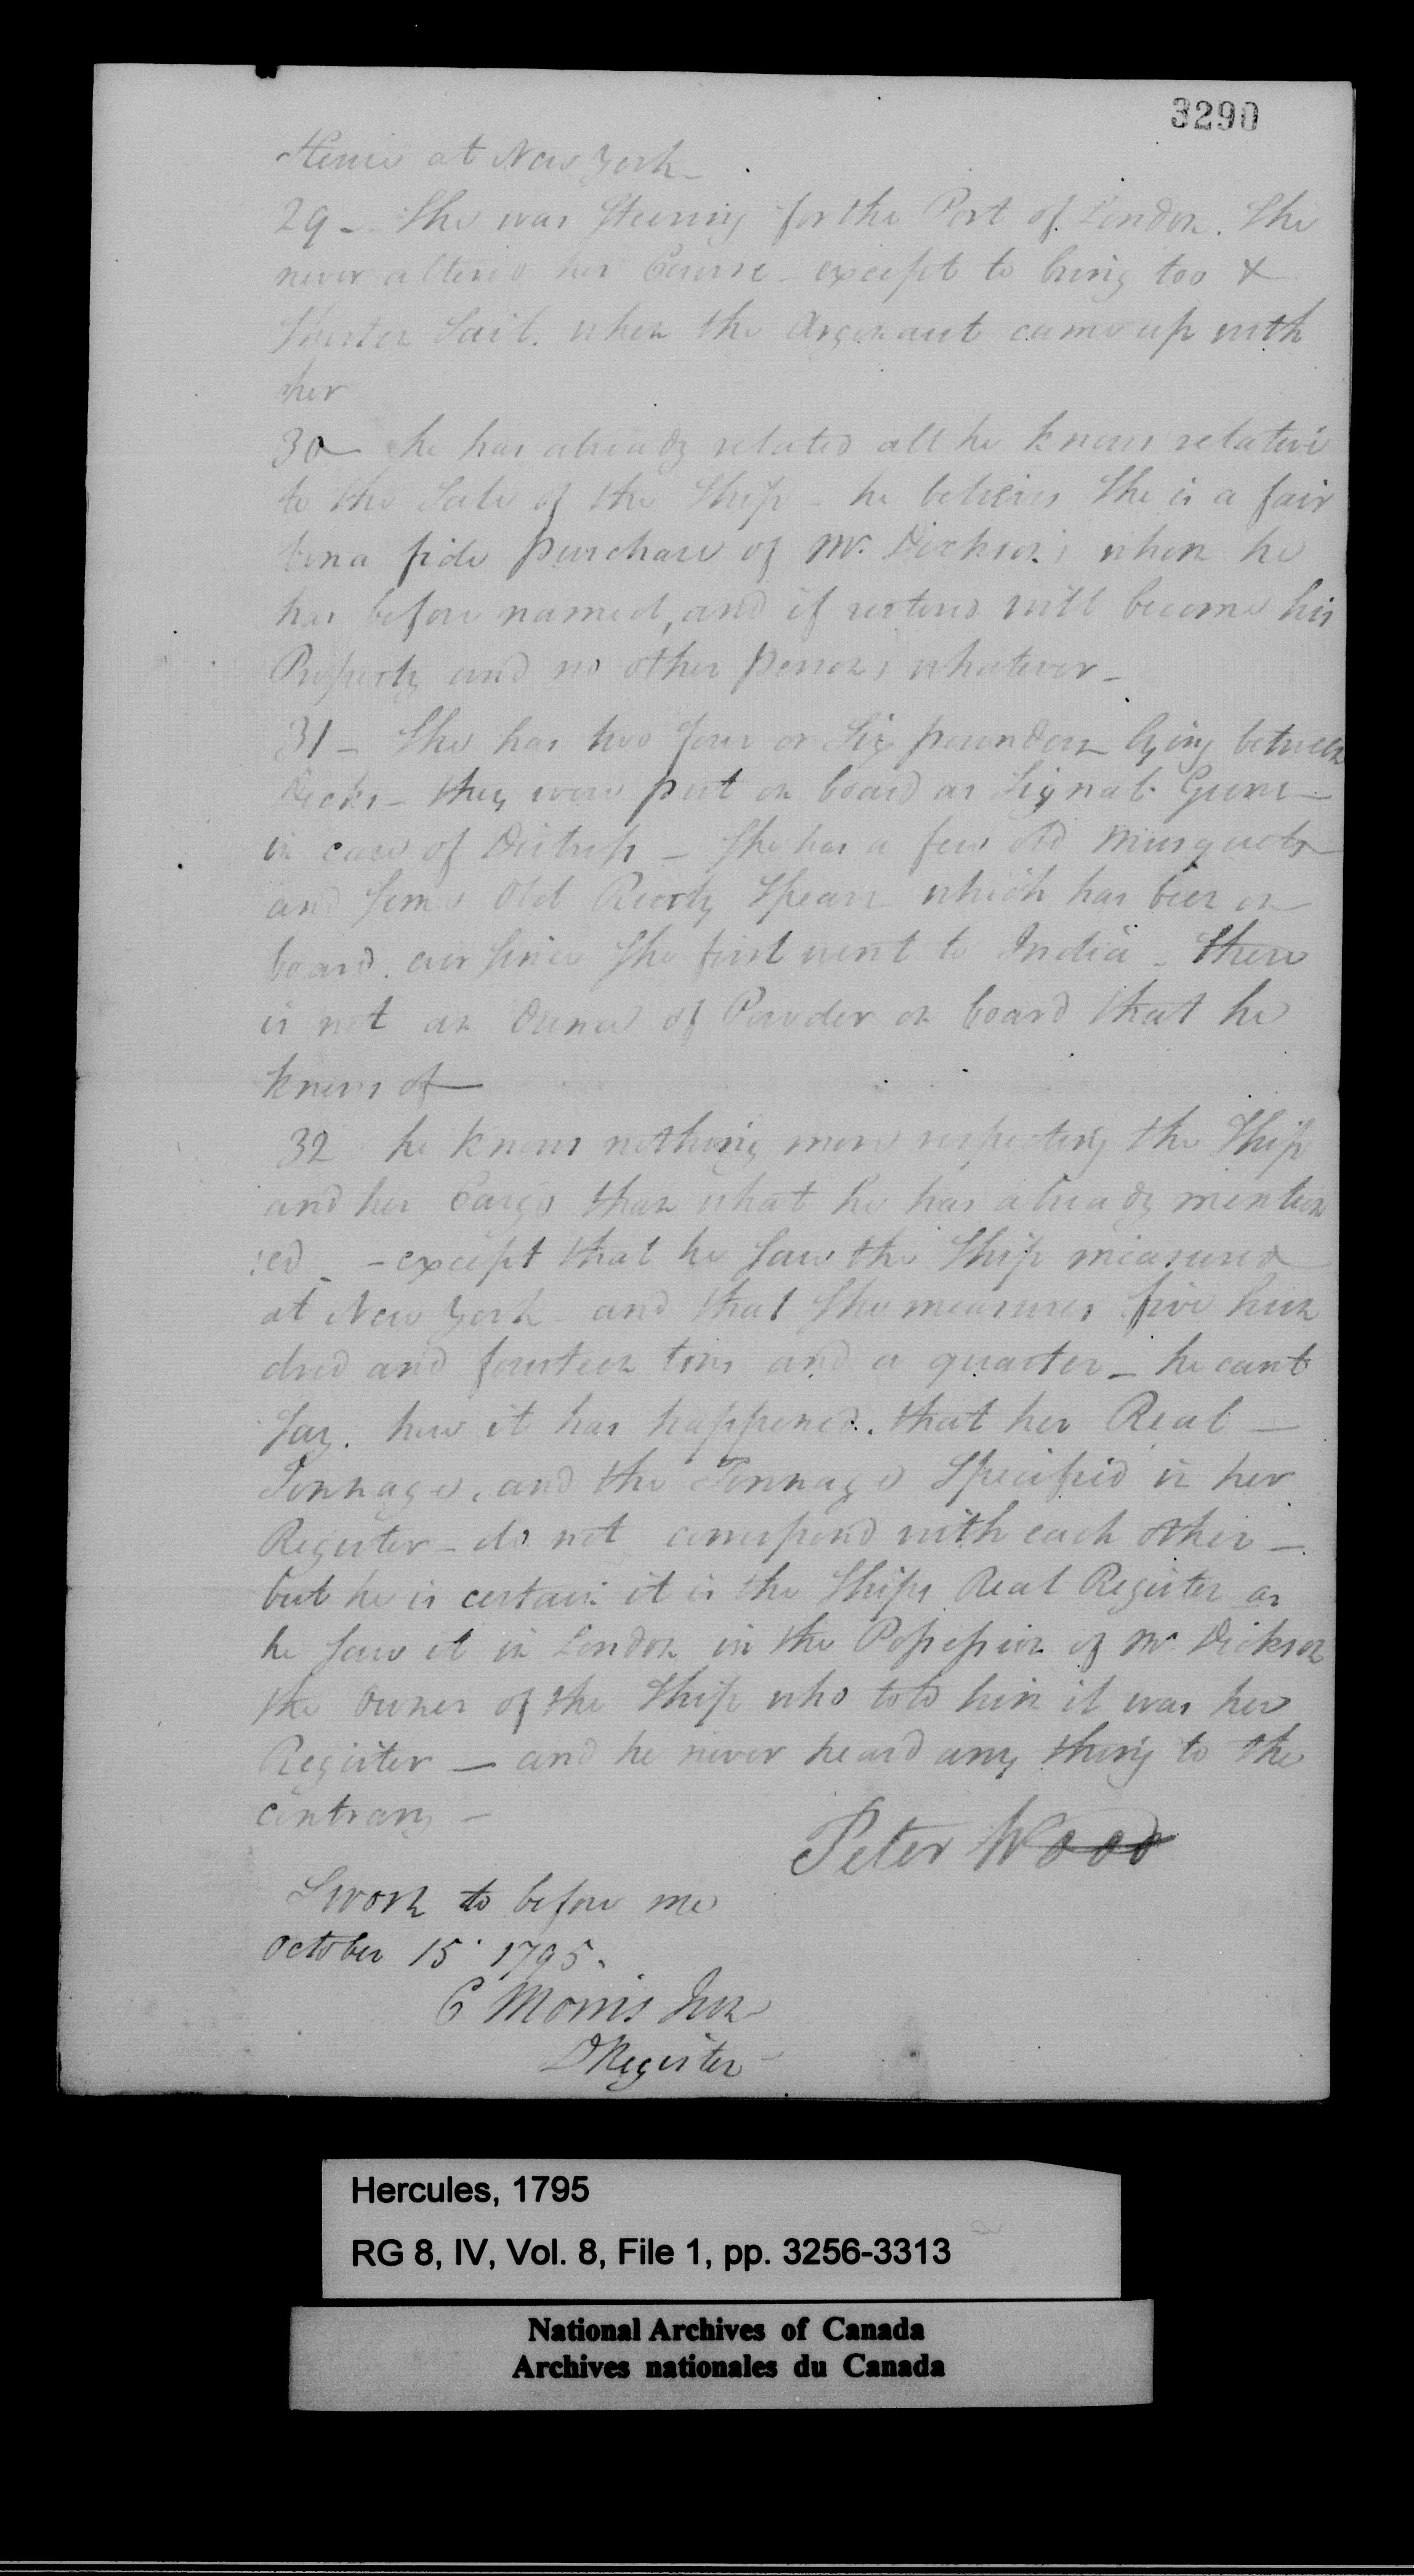 3290
time at New York –
29 – She was Steering for the Port of London. She
never altered her Course – except to bring too &
Shorten Sail. when the Argonaut came up with
her
30 – he has already related all he knows relative
to the Sale of the Ship – he believes She is a fair
bona fide purchase of Mr. Dickson's whom he
has before named, and if restored will become his
Property and no other persons whatever –
31 – She has two four or Six pounders lying between
Decks – they were put on board as Signal Guns –
in case of Distress – She has a few old Musquets
and some Old Rusty Spears which has been on
board ever since She first went to India – there
is not an Ounce of Powder on board that he
knows of –
32 he knows nothing more respecting the Ship
and her Cargo than what he has already mention
:ed – except that he saw the Ship measured
at New York – and that She measures five hun
dred and fourteen tons and a quarter – he cant
say. how it has happened. that her Real –
Tonnage, and the Tonnage Specified in her
Register – do not correspond with each other –
but he is certain it is the Ships Real Register as
he saw it in London in the Possession of Mr. Dickson
the Owner of the Ship who told him it was her
Register – and he never heard any thing to the
contrary –
Peter Wood
Sworn to before me
October 15 1795.
C Morris Jun
D Register
Hercules, 1795
RG 8, IV, Vol. 8, File 1, pp. 3256-3313
National Archives of Canada
Archives nationales du Canada